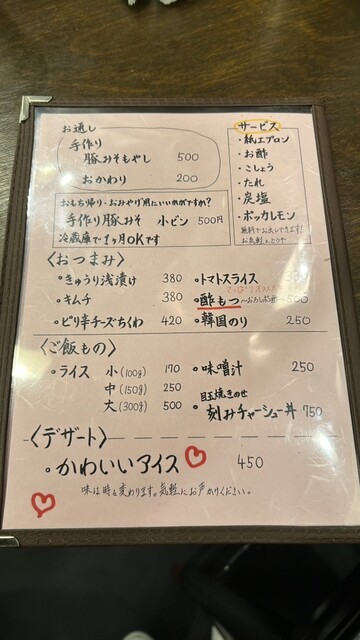 お通し
手作り
豚みそもやし 500
おかわり 200
サービス
・紙エプロン
・お酢
・こしょう
・たれ
・炭塩
・ポッカレモン
無料でお出しできます!
お気軽にどうぞ
おもち帰り・おみやげ用にいかがですか?
手作り豚みそ 小ビン 500円
冷蔵庫で1ヶ月OKです
〈おつまみ〉
・きゅうり浅漬け 380
・トマトスライス
・キムチ 380
・酢もつ 〜おろしポン酢〜 500
・ピリ辛チーズちくわ 420
・韓国のり 250
〈ご飯もの〉
・ライス 小(100g) 170
中(150g) 250
大(300g) 500
・味噌汁 250
目玉焼きのせ
・刻みチャーシュー丼 750
〈デザート〉
・かわいいアイス 450
味は時々変わります。気軽にお声かけください。